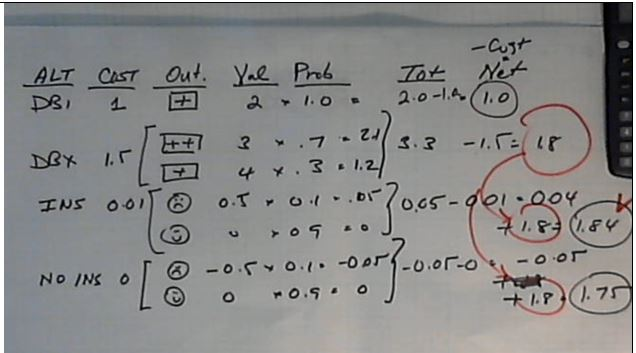 - Cust
ALT COST Out. Val Prob Tot = Net
DB1 1 + 2 × 1.0 = 2.0 - 1.0 = 1.0
DBX 1.5 [ ++ 3 × .7 = 2.1 } 3.3 - 1.5 = 1.8
+ 4 × .3 = 1.2
INS 0.01 [ ☹ 0.5 × 0.1 = .05 } 0.05 - 0.01 = 0.04
☺ 0 × 0.9 = 0 + 1.8 = 1.84
NO INS 0 [ ☹ -0.5 × 0.1 = -0.05 } -0.05 - 0 = -0.05
☺ 0 × 0.9 = 0 + 1.8 = 1.75